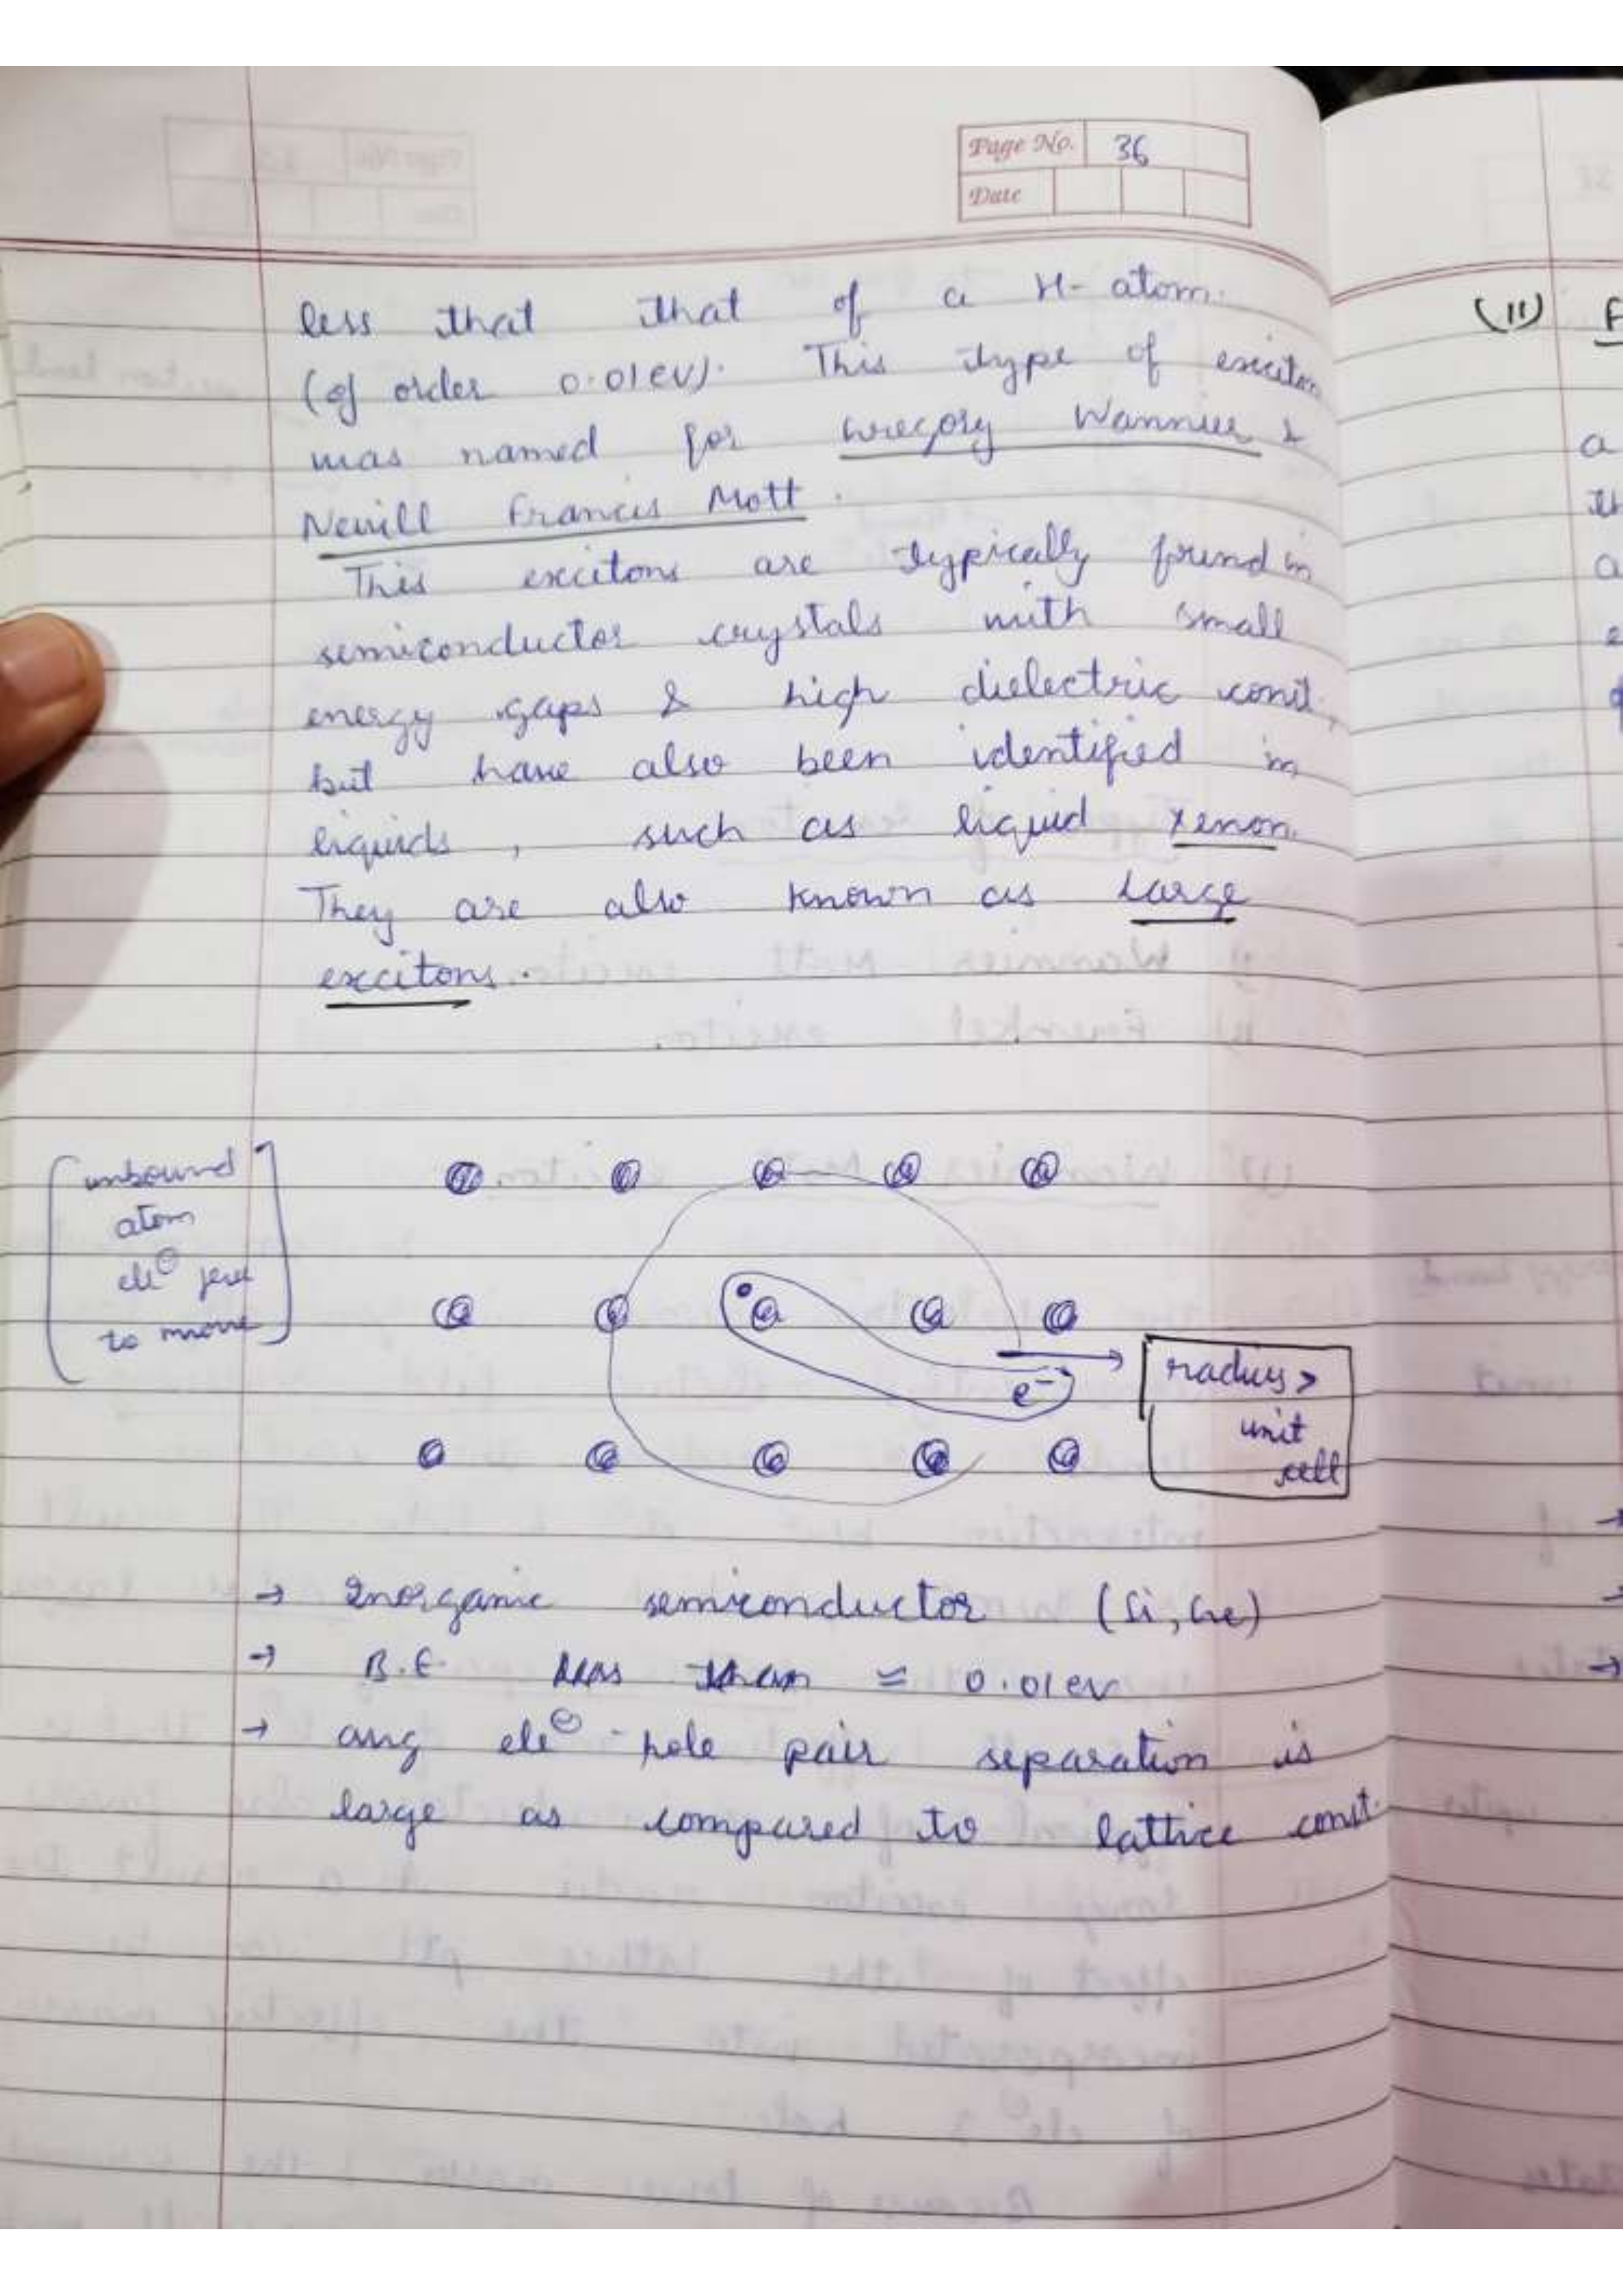 Page No. 36
Date
less that that of a H- atom.
(of order 0.01 eV). This type of exciton
was named for Gregory Wannier &
Nevill Francis Mott.
This excitons are typically found in
semiconductor crystals with small
energy gaps & high dielectric const,
but have also been identified in
liquids, such as liquid xenon.
They are also known as Large
excitons.
unbound
atom
ele⊖
to move
e⁻
radius >
unit
cell
→ Inorganic semiconductor (Si, Ge)
→ B.E. less than ≃ 0.01 ev
→ avg ele⊖ - hole pair separation is
large as compared to lattice const.
(11)